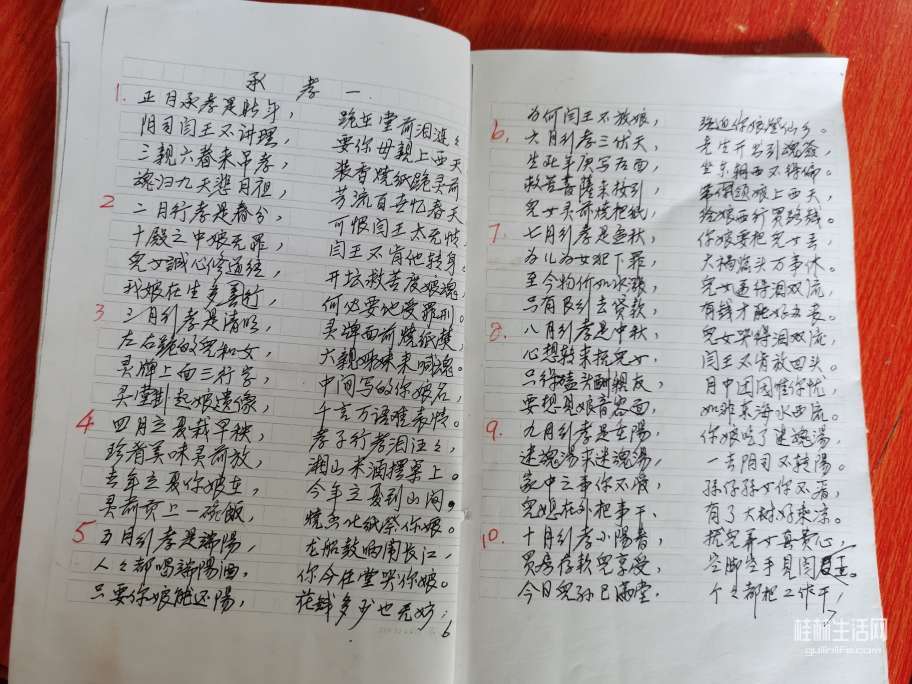 承孝一
1. 正月承孝是新年, 跪在堂前泪涟々
阴司闫王不讲理, 要你母親上西天
三親六眷来吊孝, 装香燒紙跪灵前
魂归九天 月祖, 芳流百世忆春天
2 二月行孝是春分, 可恨闫王太无情
十殿之中娘无罪, 闫王不肯他转身。
兒女誠心修道经, 开坛救苦度娘魂,
我娘在生多善行, 何必要她受罪刑。
3 三月引孝是清明, 灵牌面前燒纸钱
左右跪的兒和女, 六親 来喊魂。
灵牌上面三行字, 中间写的你娘名,
灵堂 起娘遗像, 千言万语难表情。
4 四月立夏栽早秧, 孝子行孝泪汪々,
珍肴美味灵前放, 湘山米酒摆桌上。
去年立夏你娘在, 今年立夏到山岗,
灵前贡上一碗飯, 燒香化紙祭你娘。
5 五月引孝是端陽, 龙船鼓响闹长江,
人々都喝端陽酒, 你今在堂哭你娘。
只要你娘能还陽, 花钱多少也无妨;
6
为何闫王不放娘, 强迫你娘登仙乡。
6. 六月引孝三伏天, 先生开出引魂签,
生死年庚写在面, 坐东朝西不得偏。
救苦菩薩来接引, 带你娘上西天
兒女灵前燒把紙, 给娘西行買路钱。
7. 七月引孝是立秋, 你娘要把兒女丢,
为儿为女犯下罪, 大祸临头万事休。
至今物价如水漲, 兒女逼得泪双流,
只有良引去贷款, 有钱才能好去丧。
8. 八月引孝是中秋, 兒女哭得泪双流,
心想转来抚兒女, 闫王不肯放回头。
只得磕头酬親友, 月中团圆惟你忧,
要想見娘音容面, 如非東海水西流。
9. 九月引孝是重陽, 你娘吃了迷魂湯,
迷魂湯来迷魂湯, 一去阴司不转陽。
家中之事你不管, 孫仔孫女你不看,
兒媳在外把事干、 有了大树好乘凉。
10. 十月引孝小陽春, 抚兒养女真费心,
買房存款兒享受, 空脚空手見闫王。
今日兒孙已滿堂, 个々都把工作干,
7
桂林生活网
guilinlife.com